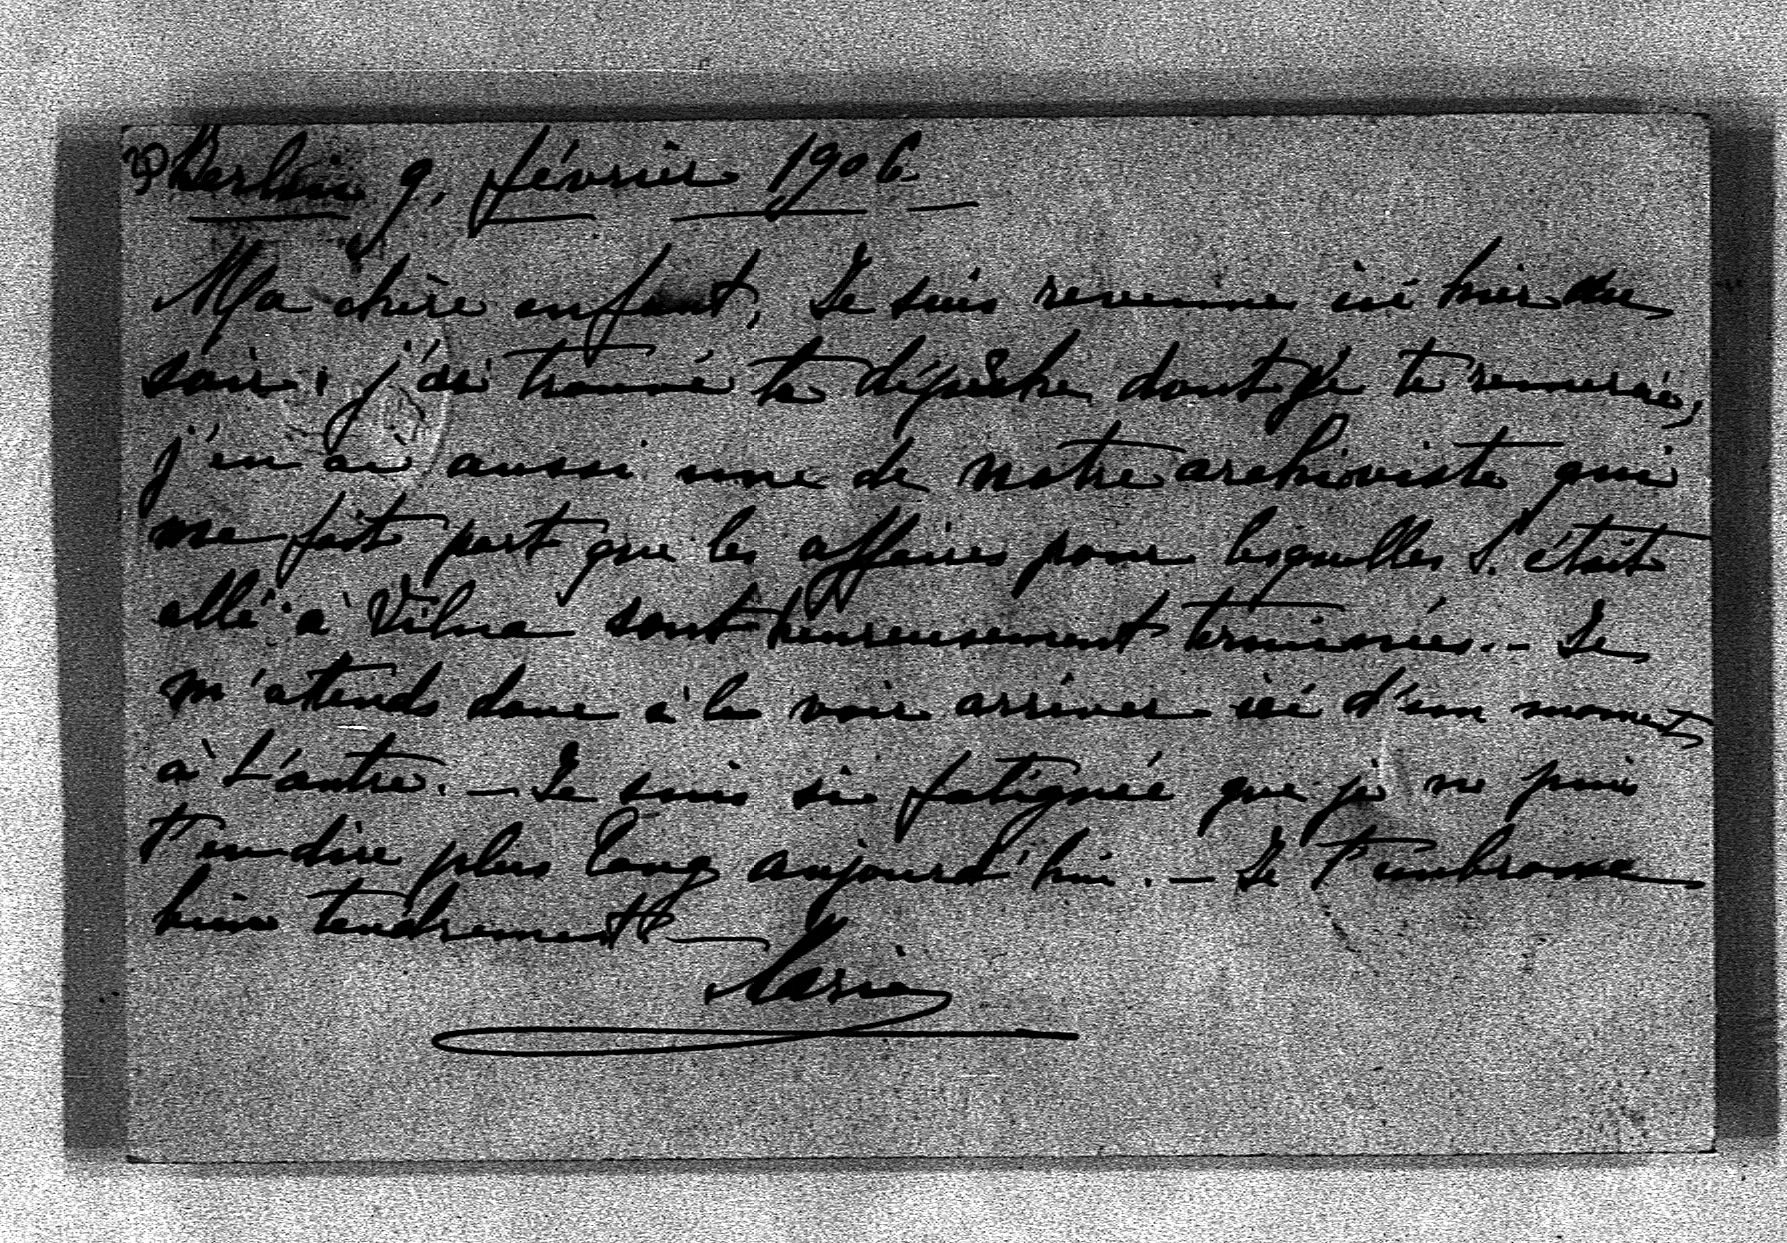 Berlin 9. février 1906
Ma chère enfant, Je suis revenue ici hier au
soir, j'ai trouvé ta dépêche dont je te remercie,
j'en ai aussi une de notre archiviste qui
me fait part que les affaires pour lesquelles S. était
allé à Vilna sont heureusement terminées. — Je
m'atends donc à le voir arriver ici d'un moment
à l'autre. — Je suis si fatiguée que je ne puis
t'en dire plus long aujourd'hui. — Je t'embrasse
bien tendrement —
Marie